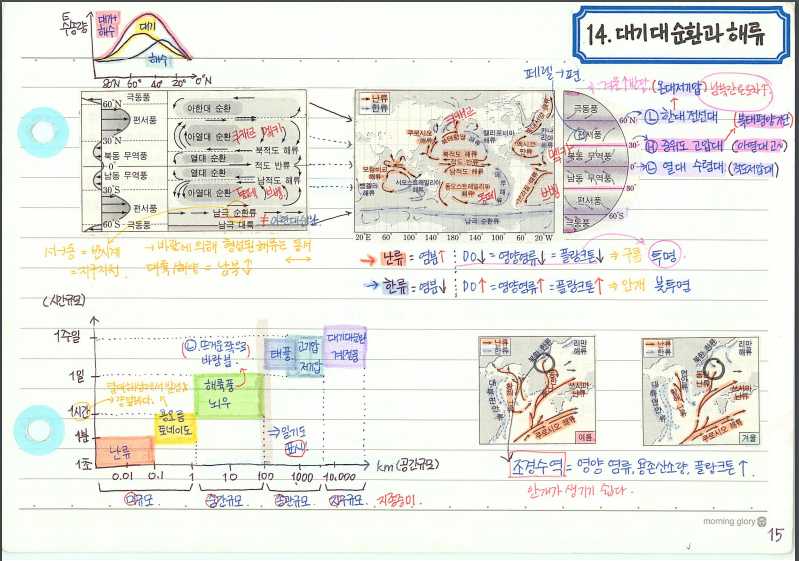 14. 대기대순환과 해류
대기+
해수
대기
해수
80°N 60° 40° 20° 0°N
극동풍
60°N
편서풍
30°N
북동 무역풍
0°
남동 무역풍
30°S
편서풍
60°S
극동풍
아한대 순환
아열대 순환
북적도 해류
열대 순환
적도 반류
열대 순환
남적도 해류
아열대 순환
남극 순환류
남극 대륙
난류
한류
쿠로시오
해류
북태평양
캘리포니아
해류
북적도 해류
적도 반류
남적도 해류
모잠비크
해류
벵겔라
해류
서오스트레일리아
해류
동오스트레일리아
해류
멕시코
만류
남극 순환류
20°E 60 100 140 180 140 100 60 20°W
페렐→편
극동풍
60°N
편서풍
30°
북동 무역풍
0°
남동 무역풍
30°
편서풍
60°S
극동풍
(온대저기압)
Ⓛ 한대전선대
(북태평양기단)
Ⓗ 중위도 고압대 (아열대고)
Ⓛ 열대 수렴대 (적도저압대)
= 지구자전
→ 바람에 의해 형성된 해류는 동서
대륙/해양 = 남북
→ 난류 = 염분↑ DO↓ = 영양염류↓ = 플랑크톤↓ ⇒ 구름 투명
→ 한류 = 염분↓ DO↑ = 영양염류↑ = 플랑크톤↑ ⇒ 안개 불투명
(시간규모)
1주일
1일
1시간
1분
1초
Ⓛ 뜨거운 쪽으로
바람 붐.
태풍
고기압
저기압
대기대순환
계절풍
해륙풍
뇌우
용오름
토네이도
난류
⇒ 일기도
표시
0.01 0.1 1 10 100 1000 10,000 km (공간규모)
미규모 중간규모 종관규모 지구규모 지종중미.
난류
한류
북한 한류
리만
해류
동한
난류
쓰시마
난류
쿠로시오 해류
여름
난류
한류
북한 한류
리만
해류
동한
난류
쓰시마
난류
쿠로시오 해류
겨울
조경수역 = 영양 염류, 용존산소량, 플랑크톤↑.
안개가 생기기 쉽다.
morning glory
15